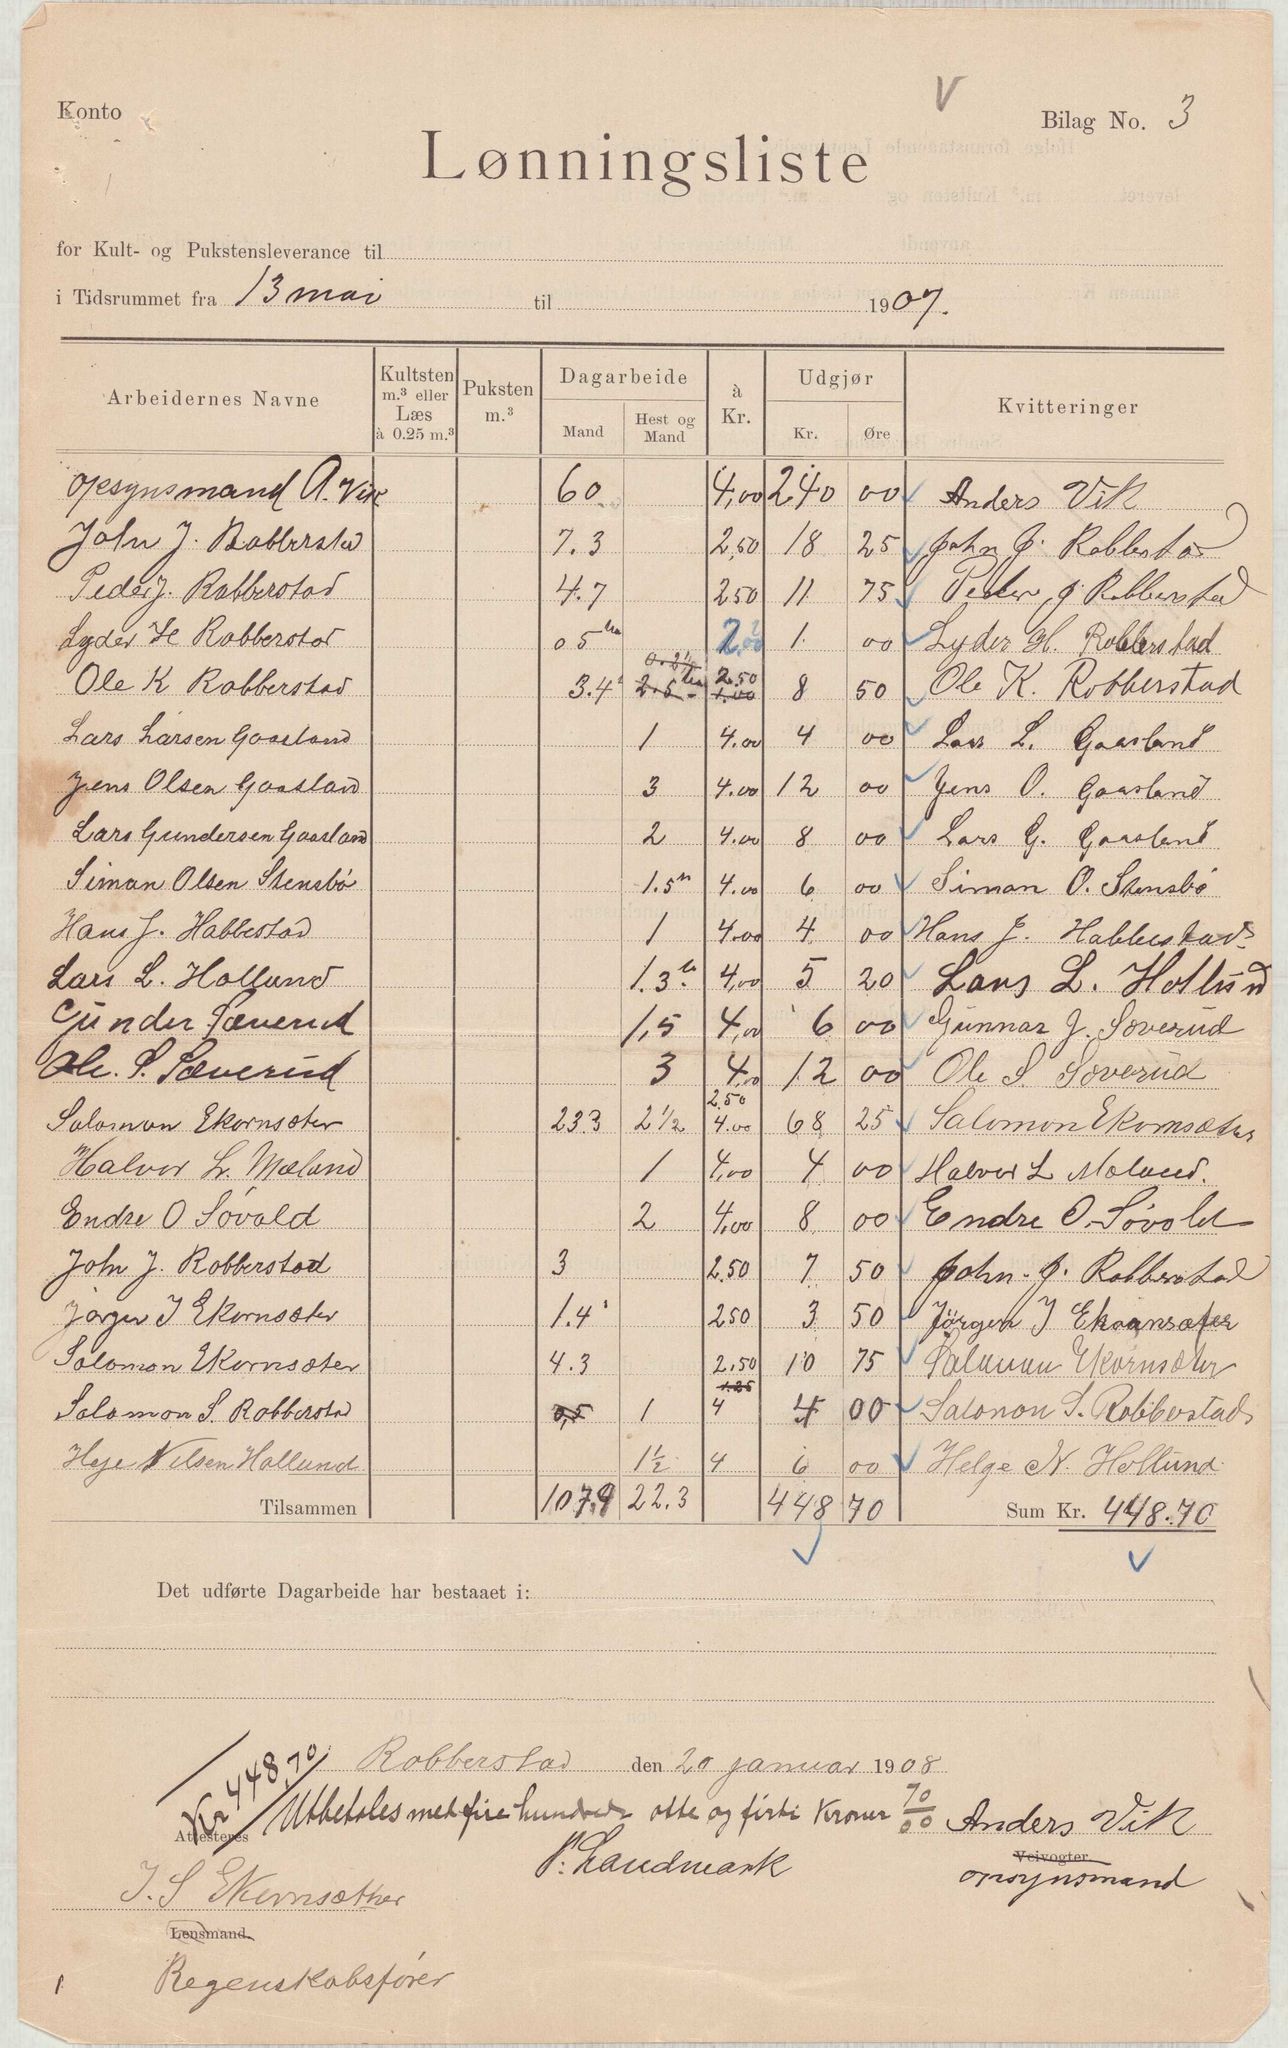 Konto
Bilag No. 3
Lønningsliste
for Kult- og Pukstensleverance til
i Tidsrummet fra 13 mai til 1907.
Arbeidernes Navne | Kultsten m.³ eller Læs à 0.25 m.³ | Puksten m.³ | Dagarbeide Mand | Hest og Mand | à Kr. | Udgjør Kr. | Øre | Kvitteringer
Opsynsmand A. Vik 60 4,00 240 00 Anders Vik
John J. Robberstad 7.3 2,50 18 25 John J. Robbestad
Peder J. Robberstad 4.7 2 50 11 75 Peder J. Robberstad
Lyder H Robberstad 0 5 2,00 1. 00 Lyder H. Robberstad
Ole K Robberstad 3.4 2.50 8 50 Ole K. Robberstad
Lars Larsen Gaasland 1 4.00 4 00 Lars L. Gaasland
Jens Olsen Gaasland 3 4.00 12 00 Jens O. Gaasland
Lars Gundersen Gaasland 2 4.00 8 00 Lars G. Gaasland
Siman Olsen Stensbö 1.5 4.00 6 00 Siman O. Stensbö
Hans J. Habbestad 1 4.00 4 00 Hans J. Habbestad
Lars L. Hollund 1.3 4,00 5 20 Lars L. Hollund
Gunder Sæverud 1,5 4,00 6 00 Gunnar J. Sæverud
Ole. S. Sæverud 3 4,00 12 00 Ole S. Sæverud
Salomon Ekornsæter 23.3 2 1/2 2.50 4.00 68 25 Salomon Ekornsæter
Halvor L. Mæland 1 4,00 4 00 Halvor L Mæland.
Endre O Sövold 2 4,00 8 00 Endre O. Sövold
John J. Robberstad 3 2.50 7 50 John. J. Robberstad
Jörgen I Ekornsæter 1.4 2 50 3 50 Jörgen I Ekornsæter
Salomon Ekornsæter 4.3 2.50 10 75 Salomon Ekornsæter
Salomon S. Robberstad 0,5 1 1.25 4 4 00 Salomon S. Robberstad
Helge Nilsen Hollund 1 1/2 4 6 00 Helge N. Hollund
Tilsammen 107.9 22.3 448 70 Sum Kr. 448.70
Det udførte Dagarbeide har bestaaet i:
Robberstad den 20 januar 1908
Kr 448,70
Utbetales med fire hundrede otte og firti Kroner 70/00
Anders Vik
Attesteres
P. Landmark
Veivogter.
opsynsmand
J. S Ekornsæther
Lensmand.
Regenskabsfører
1